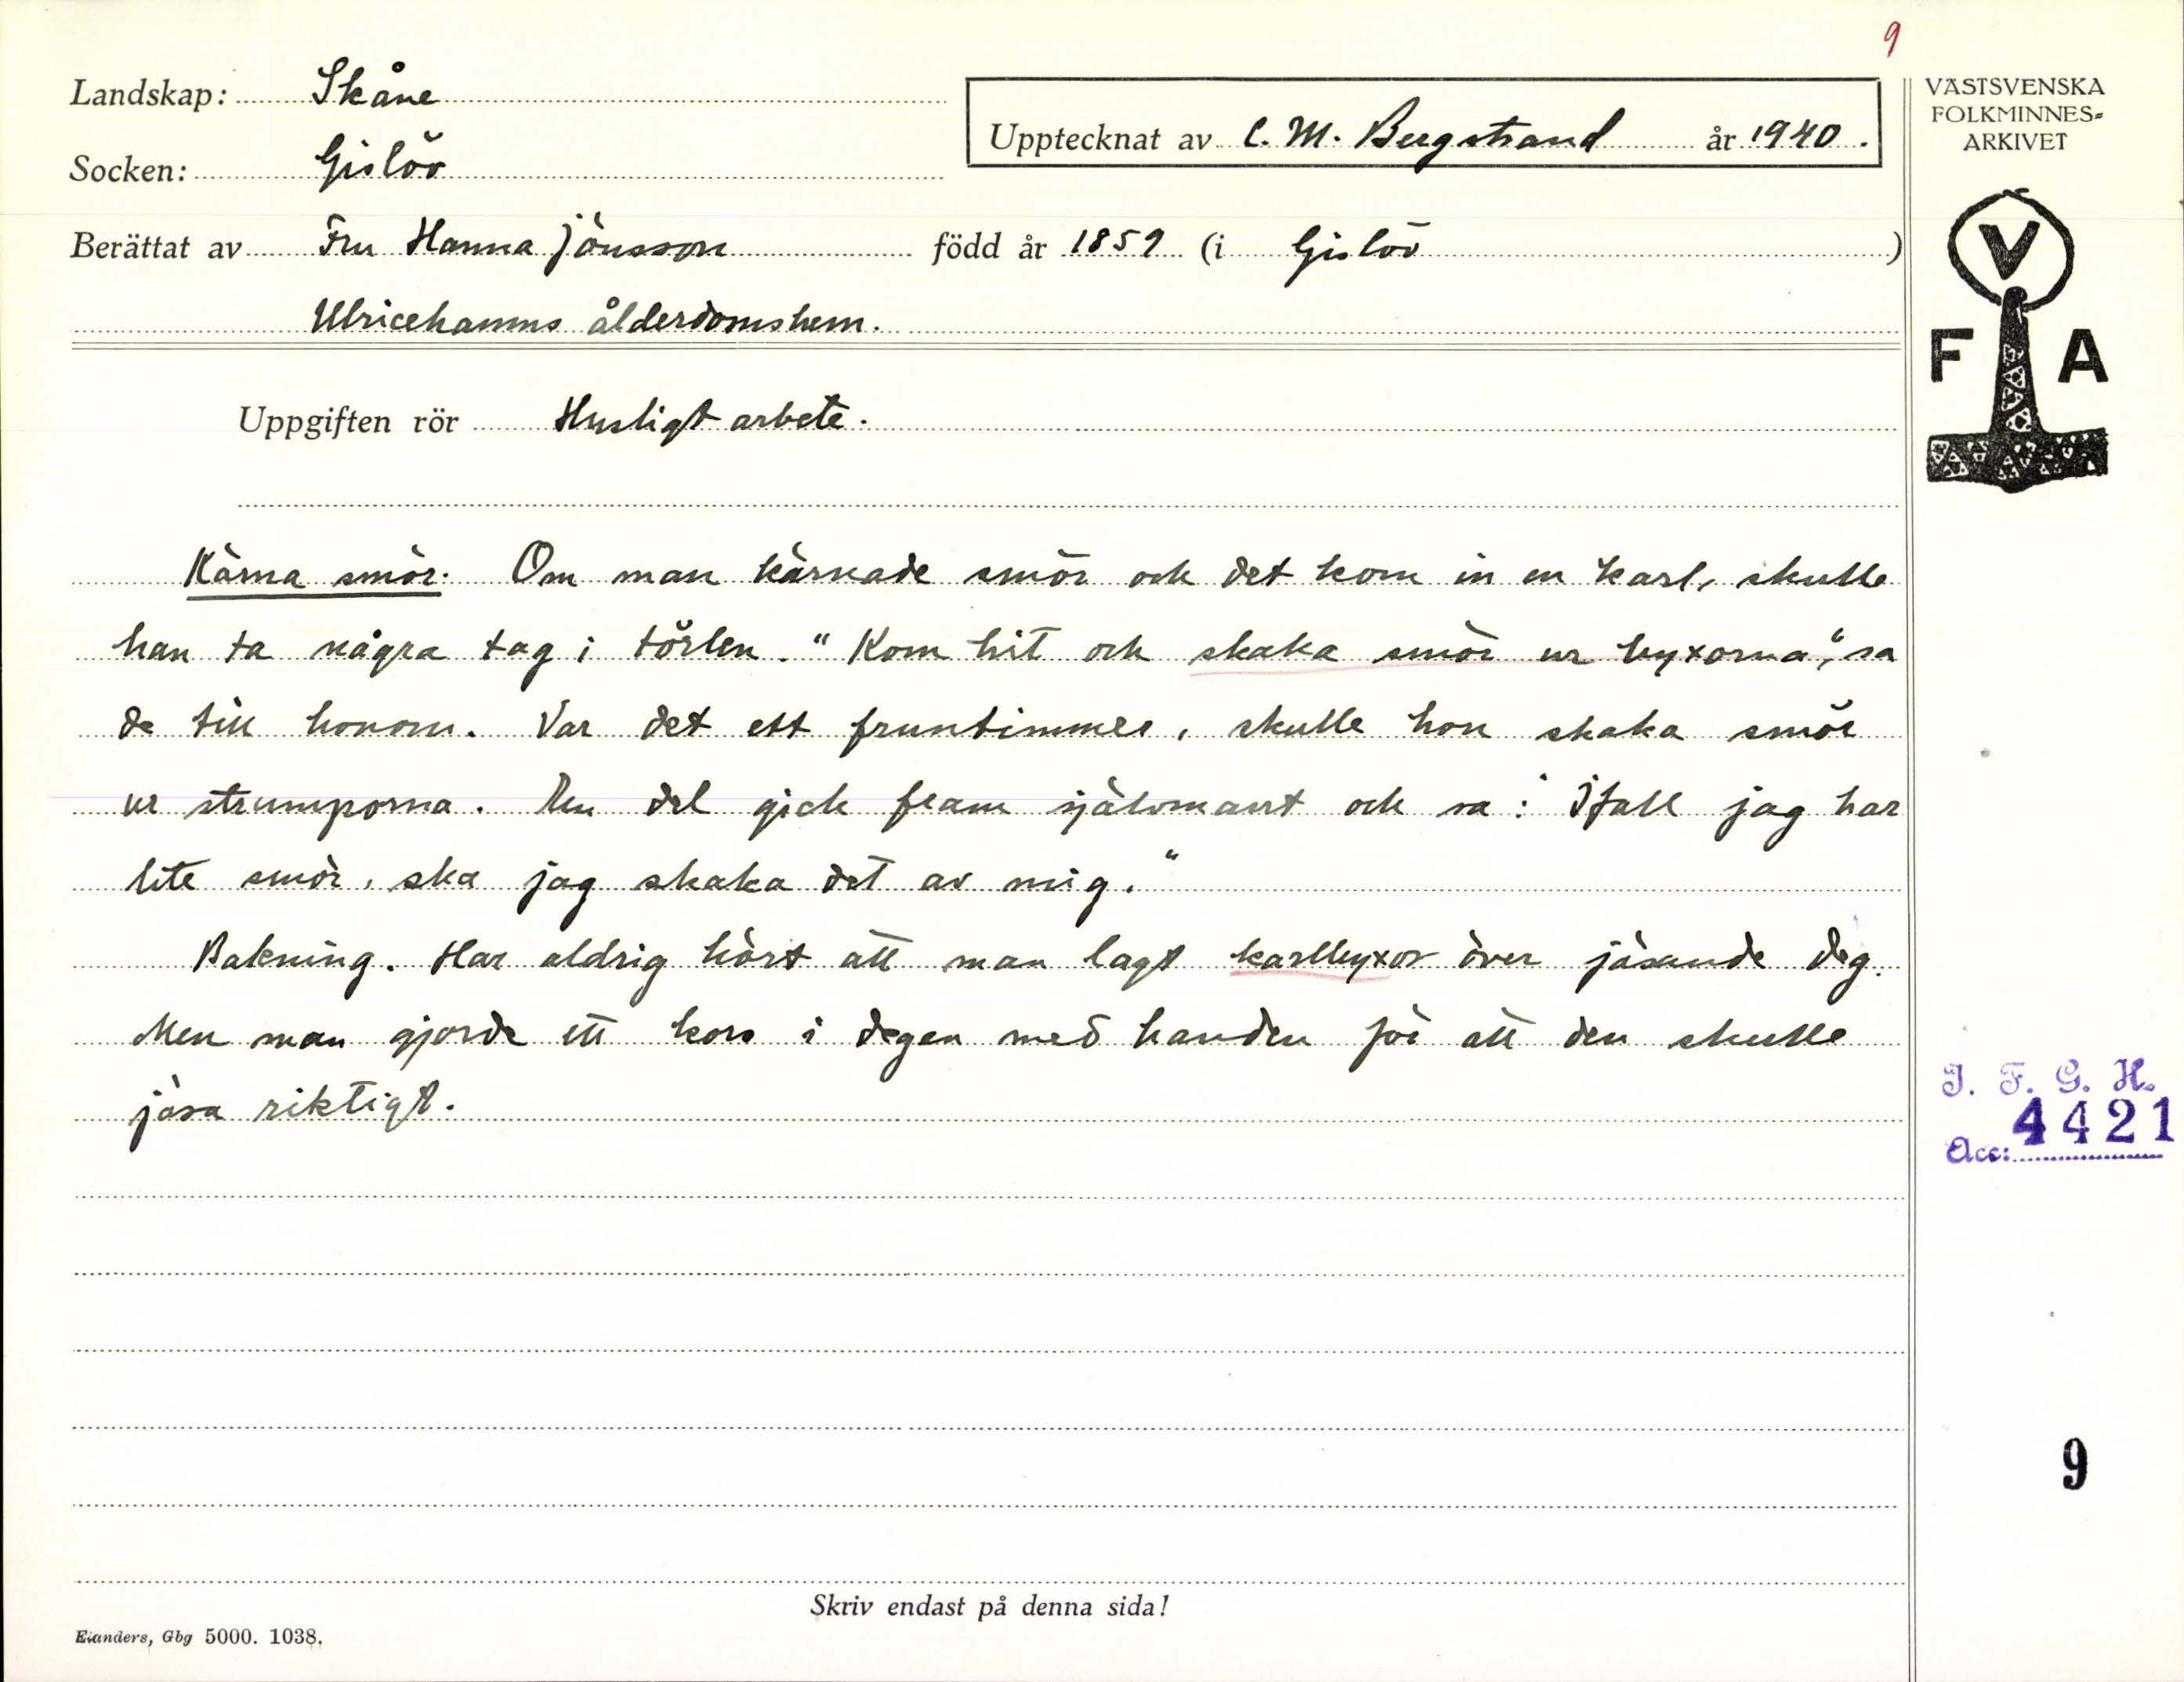 9
Landskap: Skåne
Upptecknat av C. M. Bergstrand år 1940.
Socken: Gislöv
Berättat av Fru Hanna Jönsson född år 1859 (i Gislöv)
Ulricehamns ålderdomshem.
Uppgiften rör Husligt arbete.
Kärna smör. Om man kärnade smör och det kom in en karl, skulle
han ta några tag i törlen. "Kom hit och skaka smör ur byxorna", sa
de till honom. Var det ett fruntimmer, skulle hon skaka smör
ur strumporna. En del gick fram självmant och sa: "Ifall jag har
lite smör, ska jag skaka det av mig."
Bakning. Har aldrig hört att man lagt karlbyxor över jäsande deg.
Men man gjorde ett kors i degen med handen för att den skulle
jäsa riktigt.
Skriv endast på denna sida!
Elanders, Gbg 5000. 1038.
VÄSTSVENSKA
FOLKMINNES=
ARKIVET
V
F A
I. F. G. H.
Acc: 4421
9